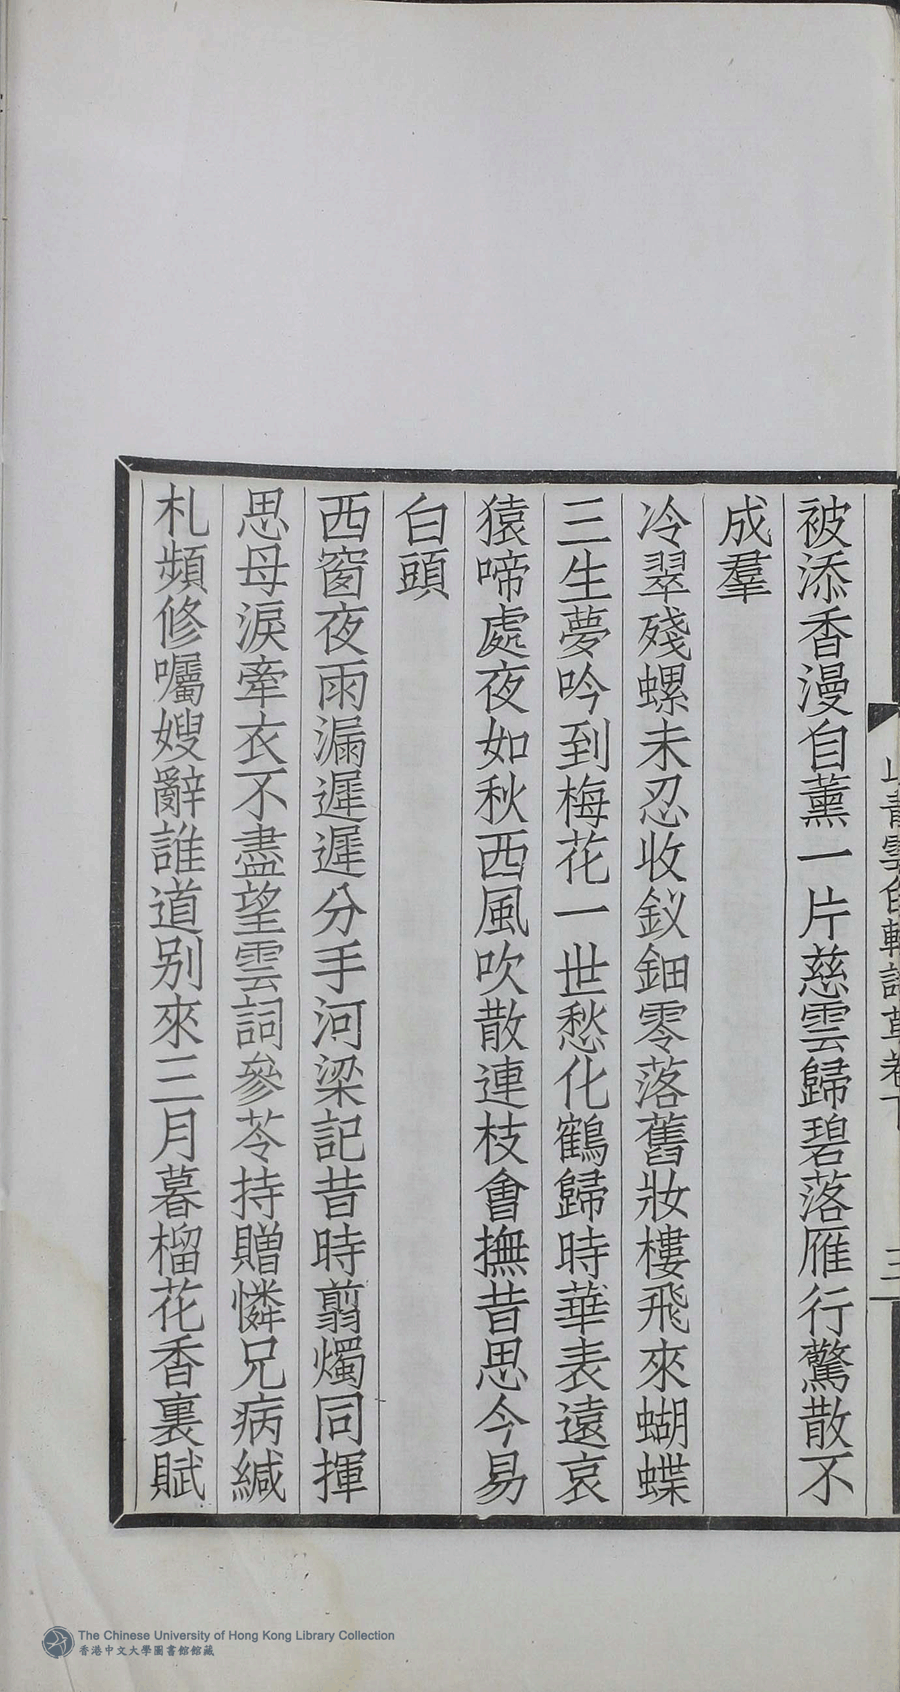 被添香漫自薰一片慈雲歸碧落雁行驚散不
成羣
冷翠殘螺未忍收釵鈿零落舊妝樓飛來蝴蝶
三生夢吟到梅花一世愁化鶴歸時華表遠哀
猿啼處夜如秋西風吹散連枝會撫昔思今易
白頭
西窗夜雨漏遲遲分手河梁記昔時翦燭同揮
思母淚牽衣不盡望雲詞參苓持贈憐兄病緘
札頻修囑嫂辭誰道別來三月暮榴花香裏賦
三
The Chinese University of Hong Kong Library Collection
香港中文大學圖書館館藏